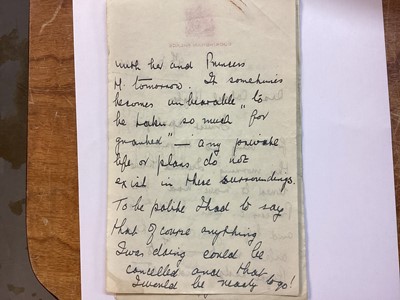 with her and Princess
M tomorrow. It sometimes
becomes unbearable "to
be taken so much for
granted" — any private
life or plans do not
exist in these surroundings.
To be polite I had to say
that of course anything
I was doing could be
cancelled and that
I would be ready to go!